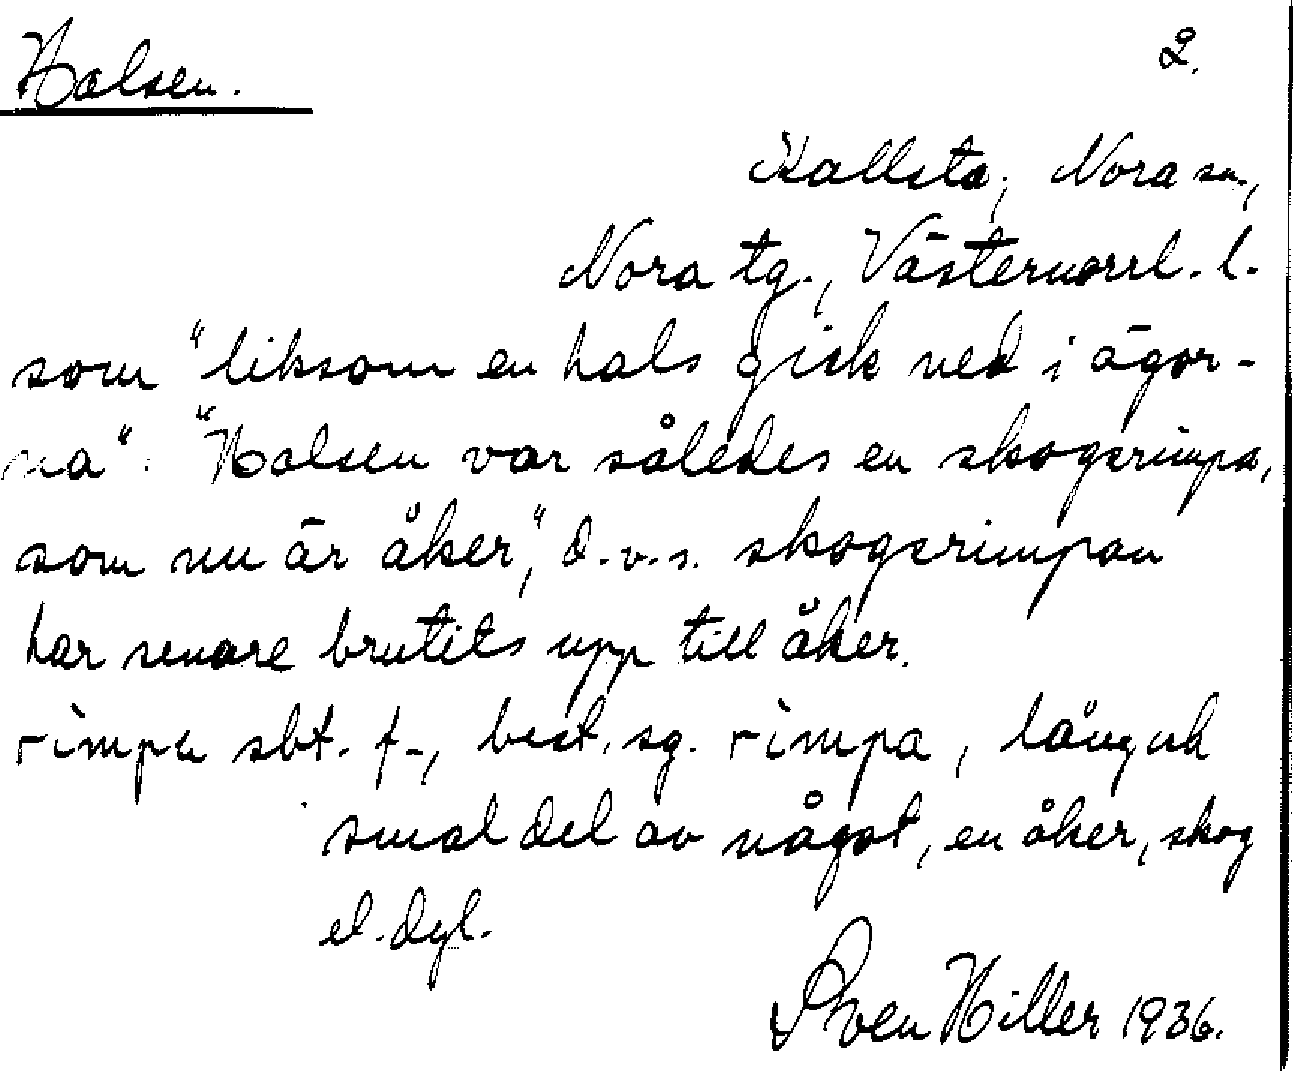 Halsen.
2.
Kallsta, Nora sn.,
Nora tg., Västernorrl. l.
som "liksom en hals gick ned i ägor-
na". "Halsen var således en skogsrimpa,
som nu är åker", d.v.s. skogsrimpan
har senare brutits upp till åker.
rimpa sbt. f., best. sg. rimpa, långuk
smal del av något, en åker, skog
el. dyl.
Sven Hiller 1936.